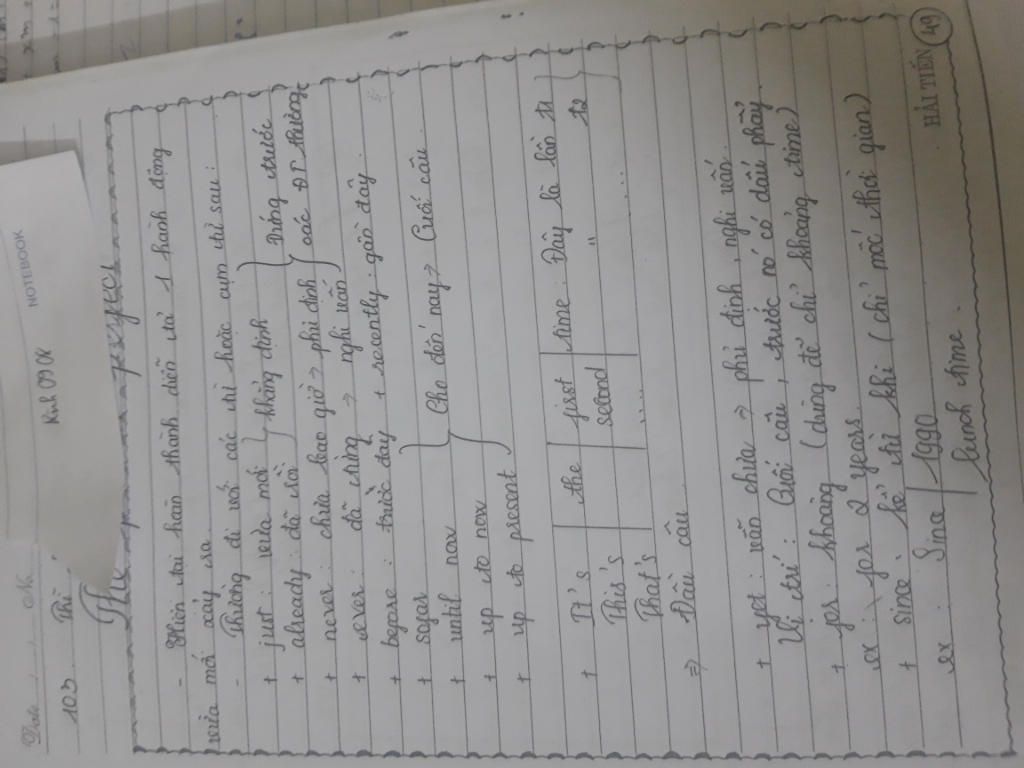 NOTEBOOK
Kinh 0908
Date
No.
103 Thì
The present perfect
- Hiện tại hoàn thành diễn tả 1 hành động
vừa mới xảy ra.
- Thường đi với các từ hoặc cụm từ sau:
+ just: vừa mới } khẳng định } Đứng trước
+ already: đã rồi } các ĐT thường
+ never: chưa bao giờ => phủ định
+ ever: đã từng => nghi vấn
+ before: trước đây + recently: gần đây.
+ sofar } Cho đến nay => Cuối câu.
+ until now
+ up to now
+ up to present
+ It's | the | first | time: Đây là lần t1
This's second " t2
That's .... .....
=> Đầu câu
+ yet: vẫn chưa => phủ định, nghi vấn.
Vị trí: Cuối câu, trước nó có dấu phẩy.
+ for: khoảng (dùng để chỉ khoảng time)
ex: for 2 years.
+ since: kể từ khi (chỉ mốc thời gian)
ex: Since | 1990
lunch time.
HẢI TIẾN 49